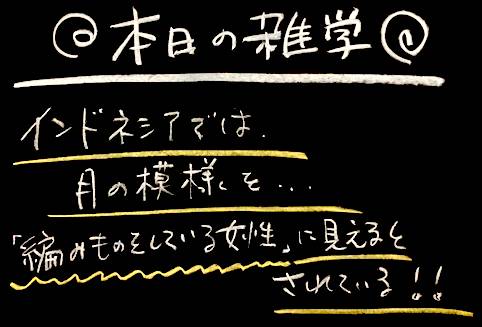 @本日の雑学@
インドネシアでは、
月の模様を...
「編みものをしている女性」に見えると
されている!!